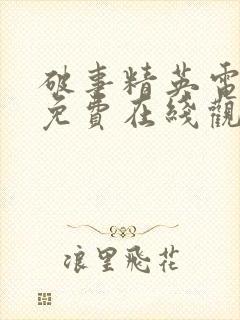 破事精英電
免費在綫觀
浪里飛花